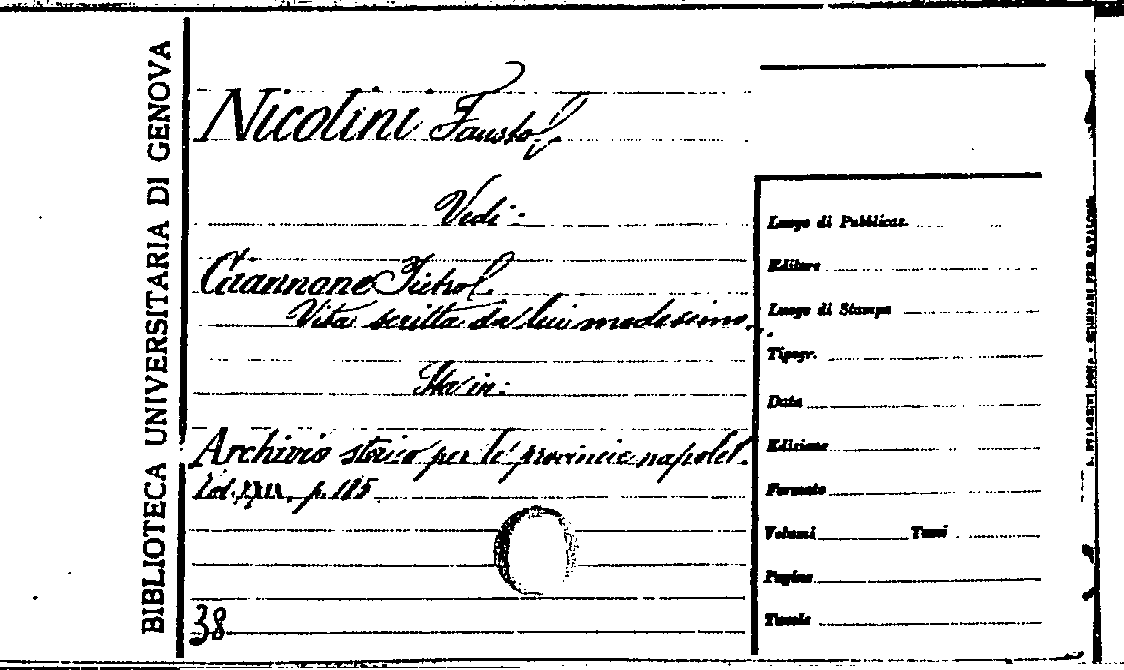 BIBLIOTECA UNIVERSITARIA DI GENOVA
Nicolini Fausto
Vedi:
Giannone Pietro
Vita scritta da lui medesimo.
Sta in:
Archivio storico per le provincie napolet.
Vol. XXIX, p. 185
38
Luogo di Pubblicaz.
Editore
Luogo di Stampa
Tipogr.
Data
Edizione
Formato
Volumi Tomi
Pagine
Tavole